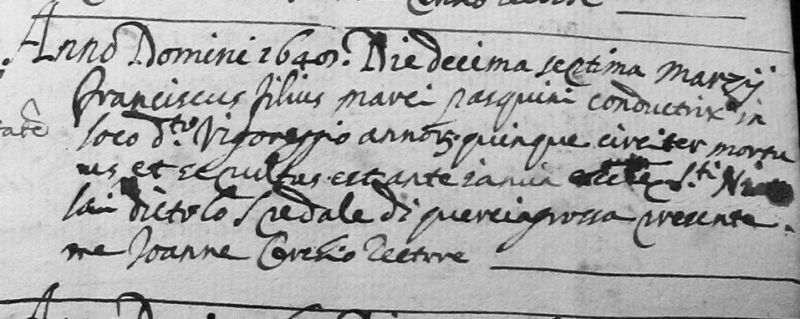 Anno Domini 1640. Die decima septima marzij
Franciscus filius marci pasquini conductrix in
loco d.to Vigoreggio annor. quinque circiter mortu
us et sepultus est ante ianua S.ti Nico
lai dicto lo Spedale di querciagrossa presente
me Joanne rectore